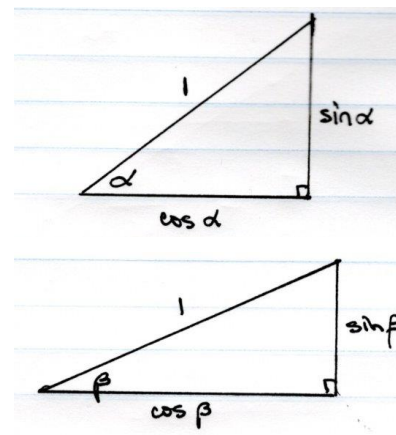 1
sin α
α
cos α
1
sin β
β
cos β